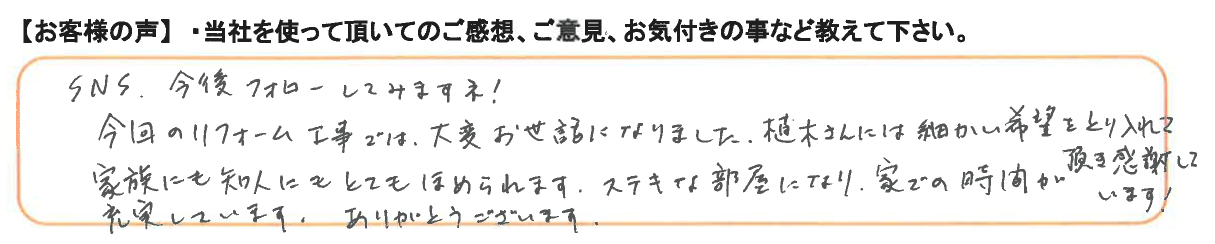 【お客様の声】・当社を使って頂いてのご感想、ご意見、お気付きの事など教えて下さい。
SNS、今後フォローしてみますネ！
今回のリフォーム工事では、大変お世話になりました。植木さんには細かい希望をとり入れて
頂き感謝して
います！
家族にも知人にもとてもほめられます。ステキな部屋になり、家での時間が
充実しています。ありがとうございます。